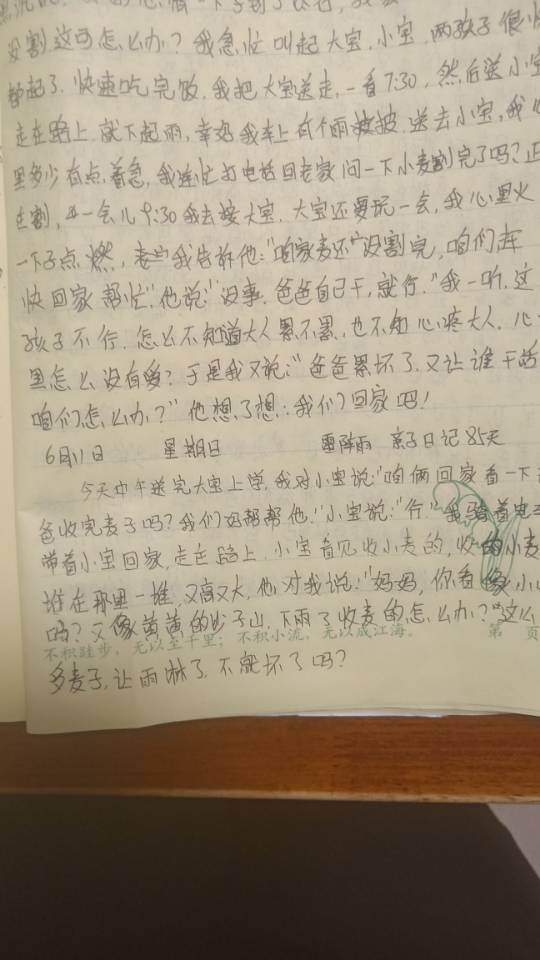 没割,这可怎么办?我急忙叫起大宝,小宝,两孩子很快
起了,快速吃完饭,我把大宝送走,一看7:30,然后送小宝
走在路上就下起雨,幸好我车上有个雨披,送去小宝,我心
里多少有点着急,我连忙打电话回老家问一下小麦割完了吗?正
在割,一会儿9:30我去接大宝,大宝还要玩一会,我心里火
一下子点燃,我告诉他:"咱家麦还没割完,咱们赶
快回家帮忙",他说:"没事,爸爸自己干,就行,"我一听,这
孩子不行,怎么不知道大人累不累,也不知心疼大人,心
里怎么没有爱?于是我又说:"爸爸累坏了,又让谁干活
咱们怎么办?"他想了想:我们回家吧!
6月11日 星期日 雷阵雨 亲子日记85天
今天中午送完大宝上学,我对小宝说:"咱俩回家看一下
爸收完麦子吗?我们好帮帮他."小宝说:"行."我骑着电
带着小宝回家,走在路上,小宝看见收小麦的,收的小麦
堆在那里一堆,又高又大,他对我说:"妈妈,你看像小山
吗?又像黄黄的沙子山,下雨了收麦的怎么办?"这么
不积跬步,无以至千里;不积小流,无以成江海。 第 页
多麦子,让雨淋了,不就坏了吗?